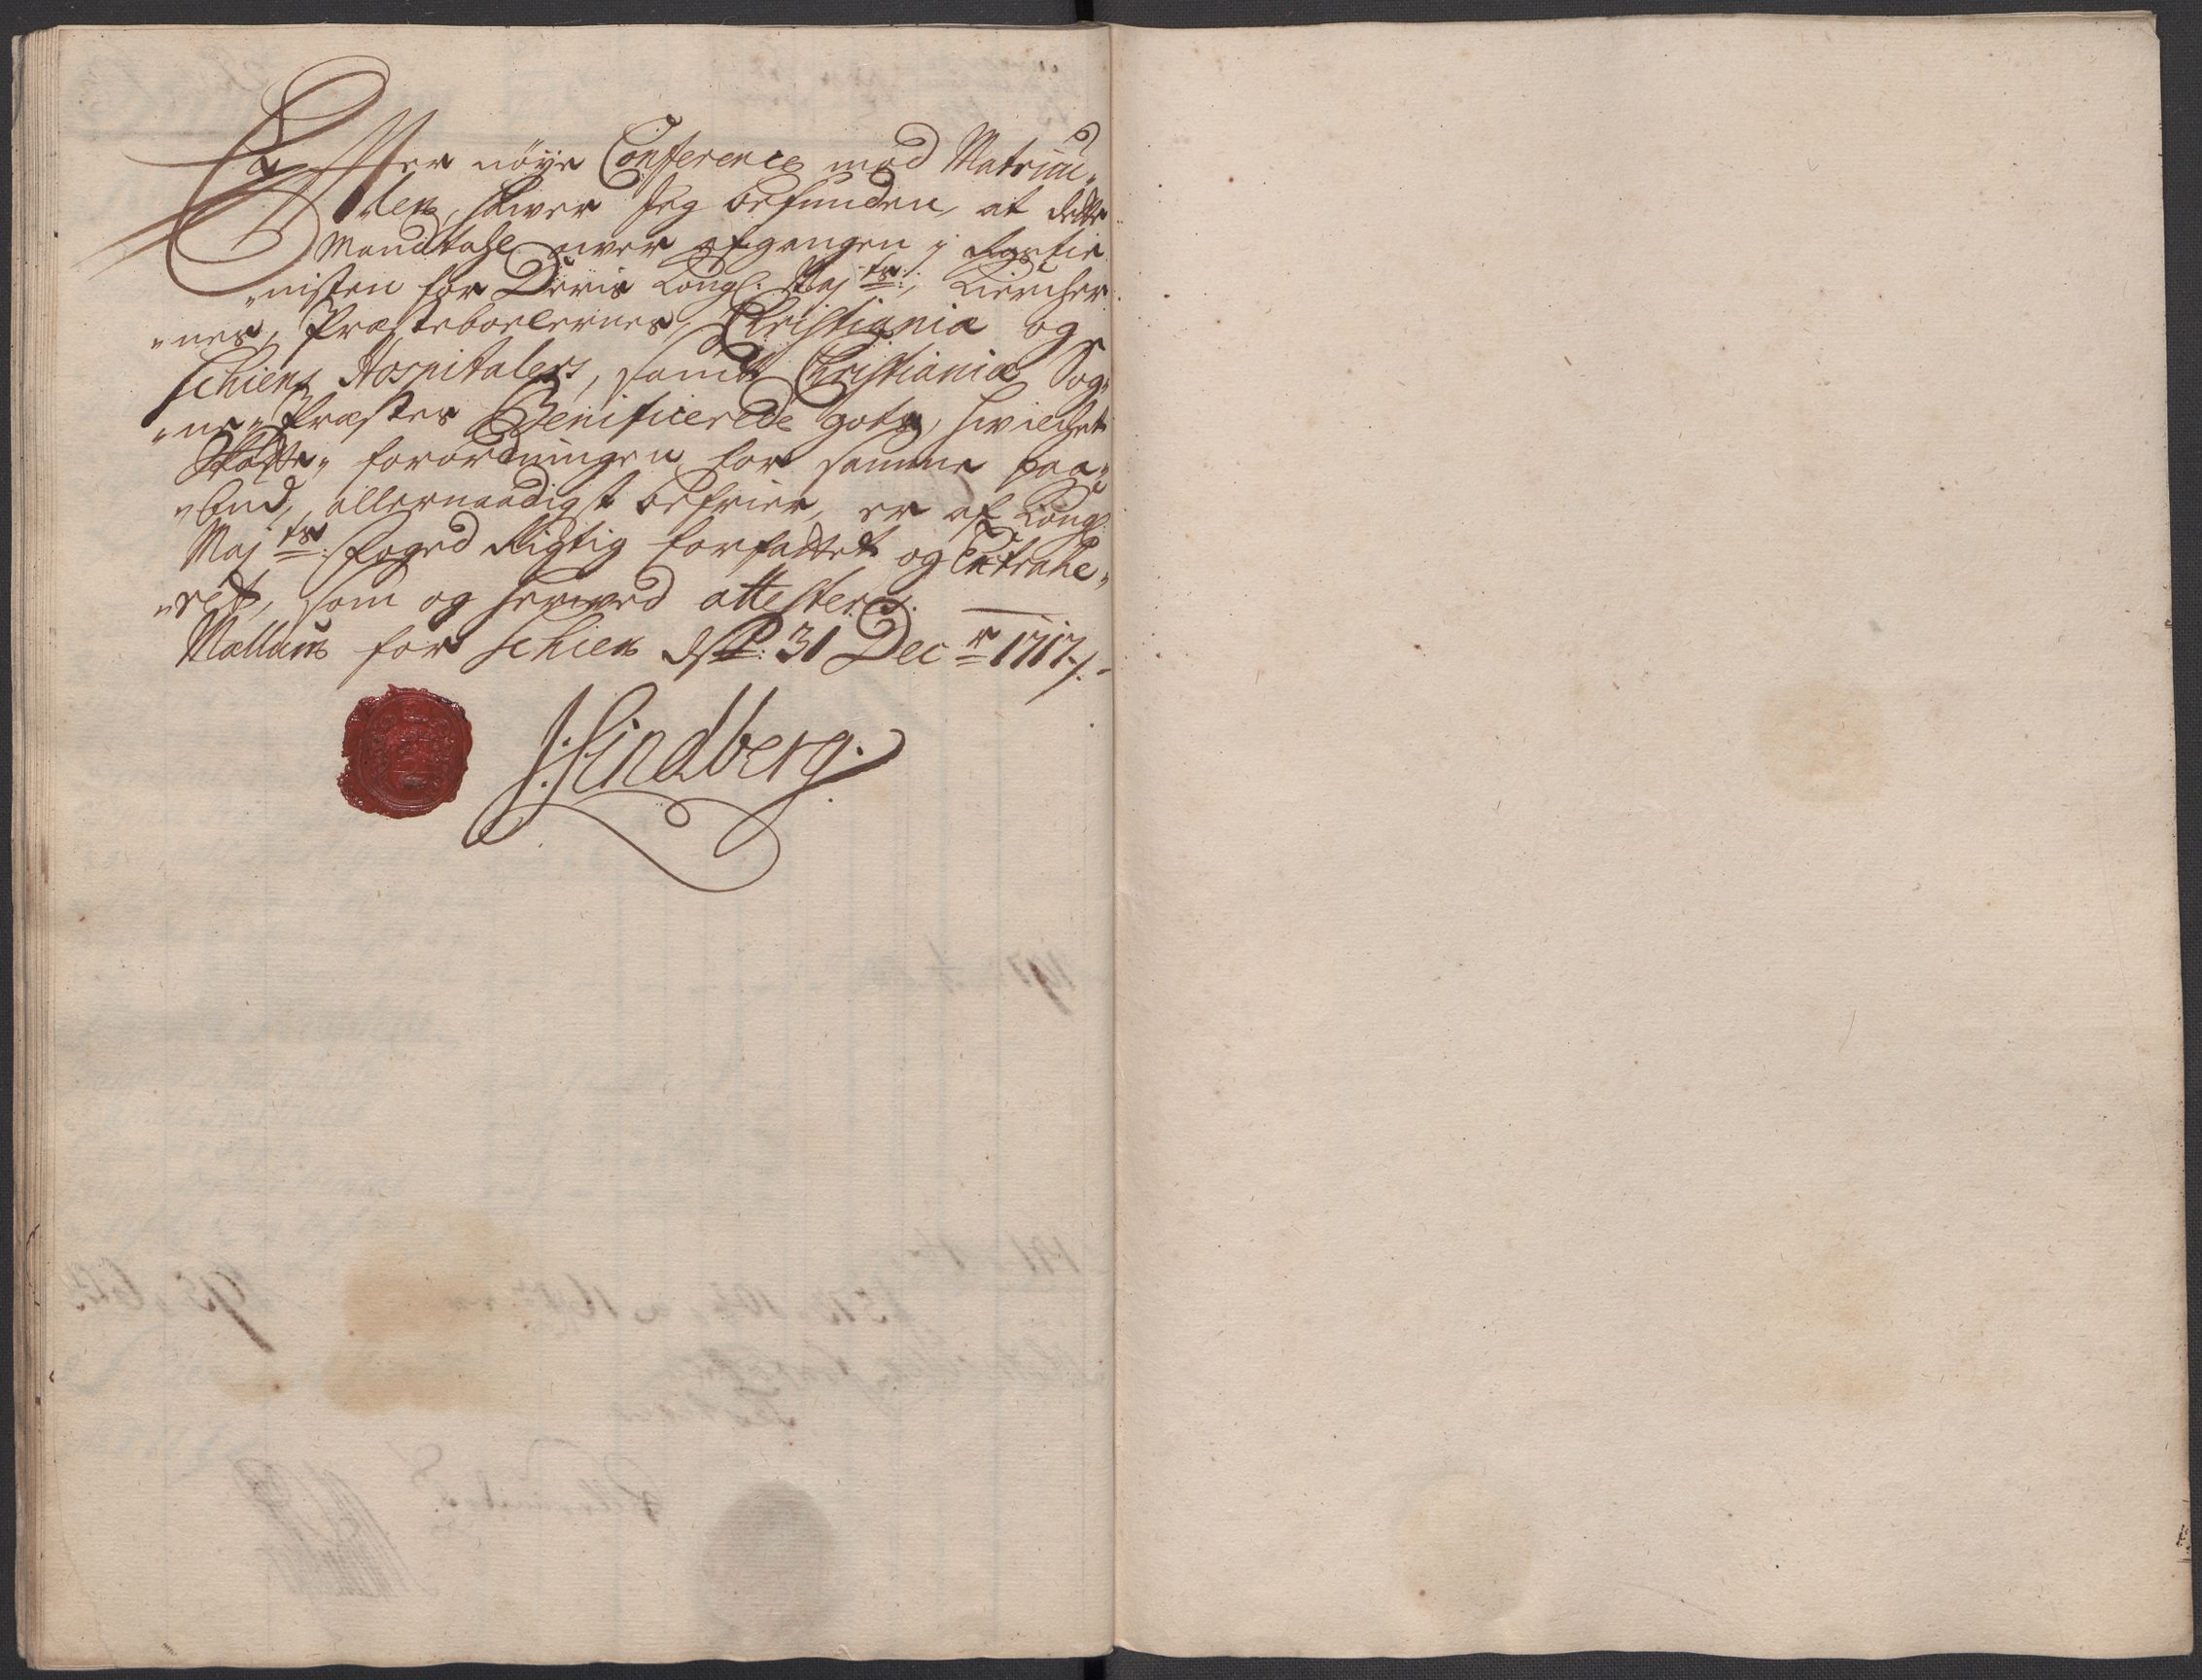 Efter nöye Conference mod Matricu-
len, hawer Jeg befunden, at dette
Mandtahl over afgangen i
for Deris Kongl: Maj:ts:, Kircher
"nes, Præsteboelernes, Christiania og
Schiens Hospitalers, samt Christiania Sog-
"ne-Præstes Beneficerede gods, hvilchet
Skatte-forordningen for samme paa-
"bud, allernaadigst befrier, er af Kongl:
Maj:ts: foged Rigtig forfattet og Extrahe-
"ret, som og herved attesteris.
Mællum for Schien d: 31 Dec:r 1717
J: Lindberg.